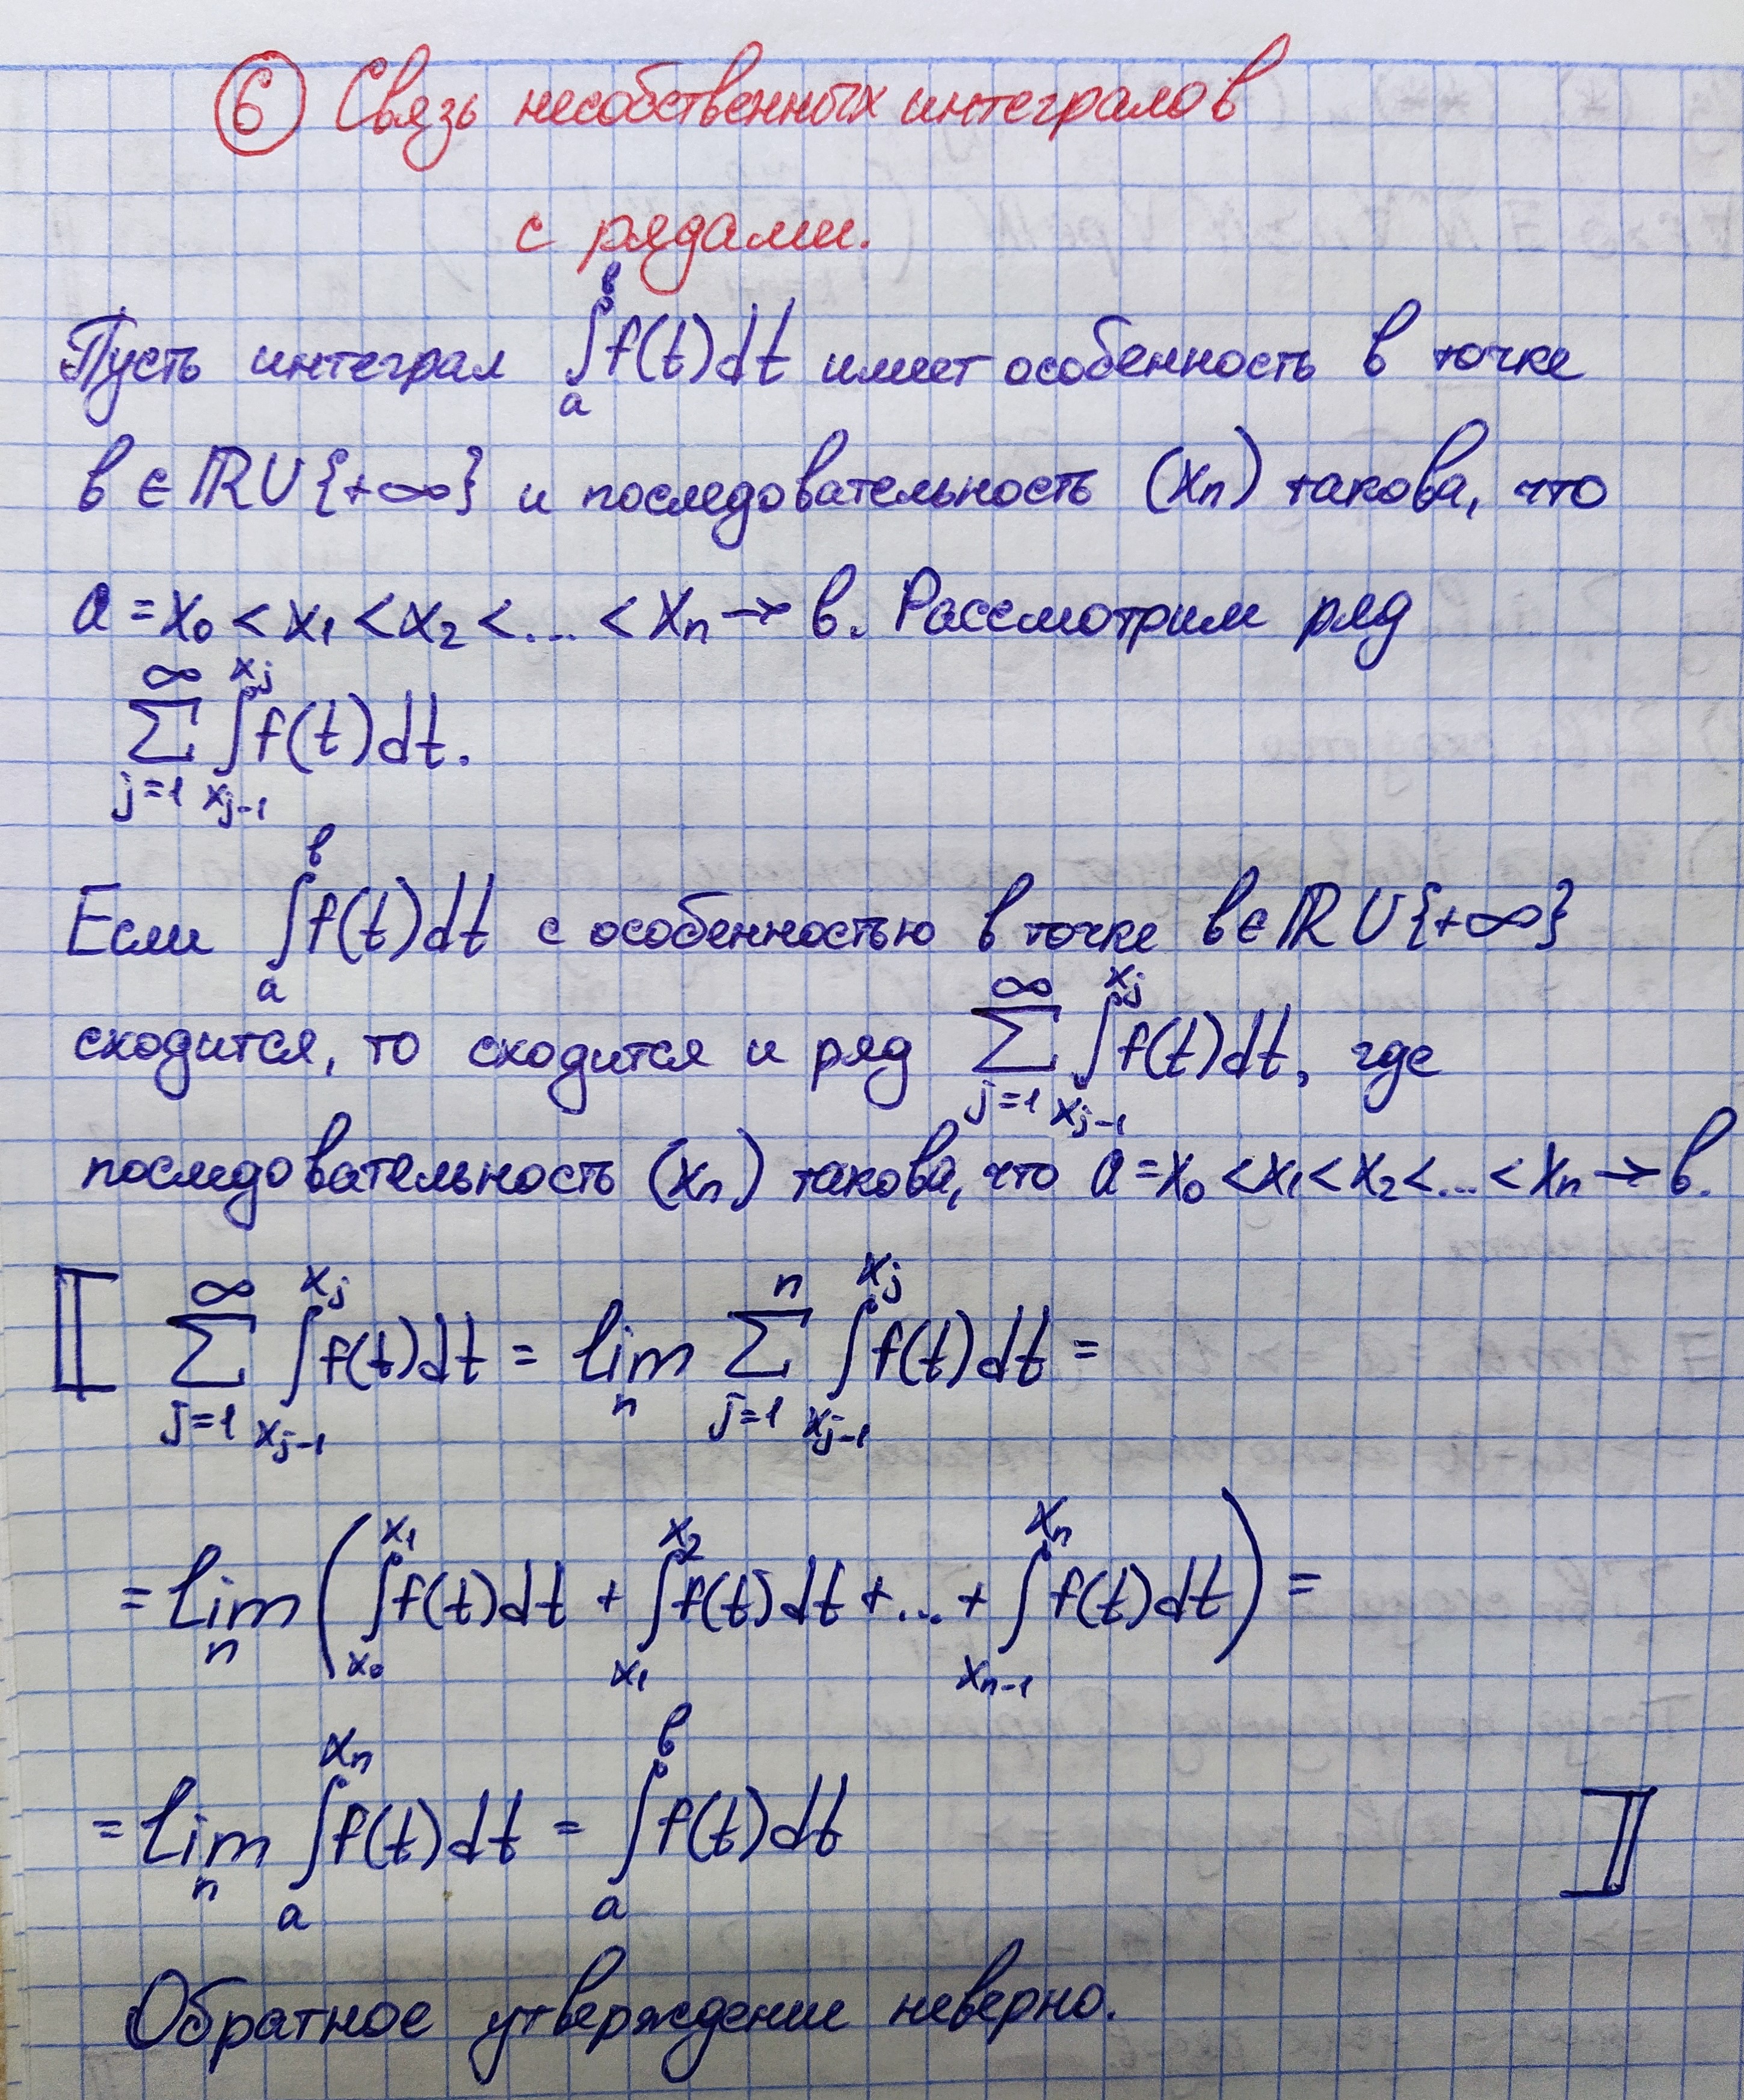 ⑥ Связь несобственных интегралов
с рядами.
Пусть интеграл ∫_a^b f(t)dt имеет особенность в точке
b ∈ ℝ∪{+∞} и последовательность (xₙ) такова, что
a = x₀ < x₁ < x₂ < ... < xₙ → b. Рассмотрим ряд
∑_{j=1}^∞ ∫_{x_{j-1}}^{x_j} f(t)dt.
Если ∫_a^b f(t)dt с особенностью в точке b ∈ ℝ∪{+∞}
сходится, то сходится и ряд ∑_{j=1}^∞ ∫_{x_{j-1}}^{x_j} f(t)dt, где
последовательность (xₙ) такова, что a = x₀ < x₁ < x₂ < ... < xₙ → b.
⟦ ∑_{j=1}^∞ ∫_{x_{j-1}}^{x_j} f(t)dt = lim_n ∑_{j=1}^n ∫_{x_{j-1}}^{x_j} f(t)dt =
= lim_n ( ∫_{x₀}^{x₁} f(t)dt + ∫_{x₁}^{x₂} f(t)dt + ... + ∫_{x_{n-1}}^{x_n} f(t)dt ) =
= lim_n ∫_a^{x_n} f(t)dt = ∫_a^b f(t)dt ⟧
Обратное утверждение неверно.